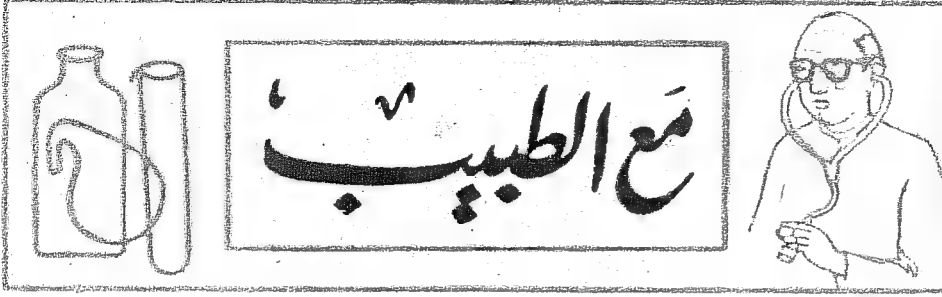 مَع الطبيبْ